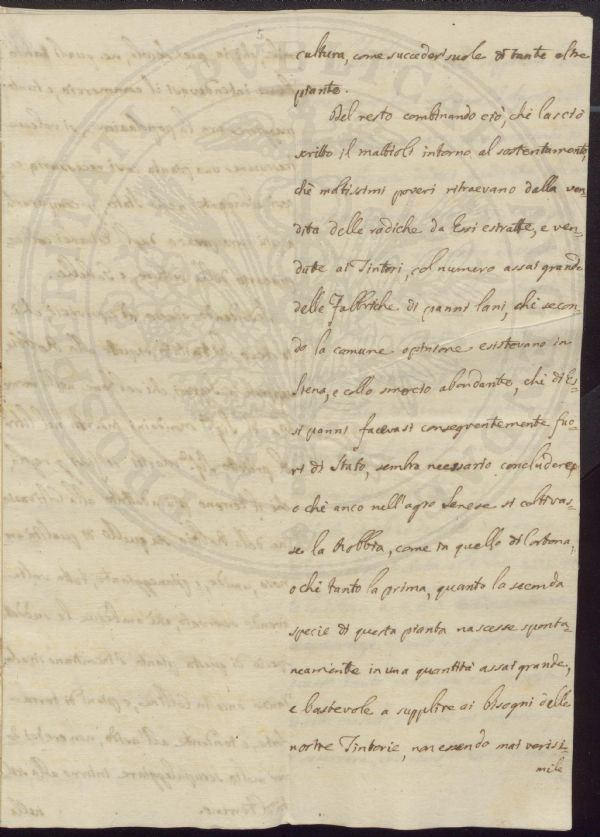 cultura, come succeder suole di tante altre
piante.
Del resto combinando ciò, che lasciò
scritto il Mattioli intorno al sostentamento,
che moltissimi poveri ritraevano dalla ven-
dita delle radiche da Essi estratte, e ven-
dute ai Tintori, col numero assai grande
delle Fabbriche di panni lani, che secon-
do la comune opinione esistevano in
Siena, e collo smercio abondante, che di Es-
si panni facevasi conseguentemente fuo-
ri di Stato, sembra necessario concludere,
o che anco nell'agro Senese si coltivas-
se la Robbia, come in quello di Cortona;
o che tanto la prima, quanto la seconda
specie di questa pianta nascesse sponta-
neamente in una quantità assai grande,
e bastevole a supplire ai bisogni delle
nostre Tintorie, non essendo mai verisi-
mile